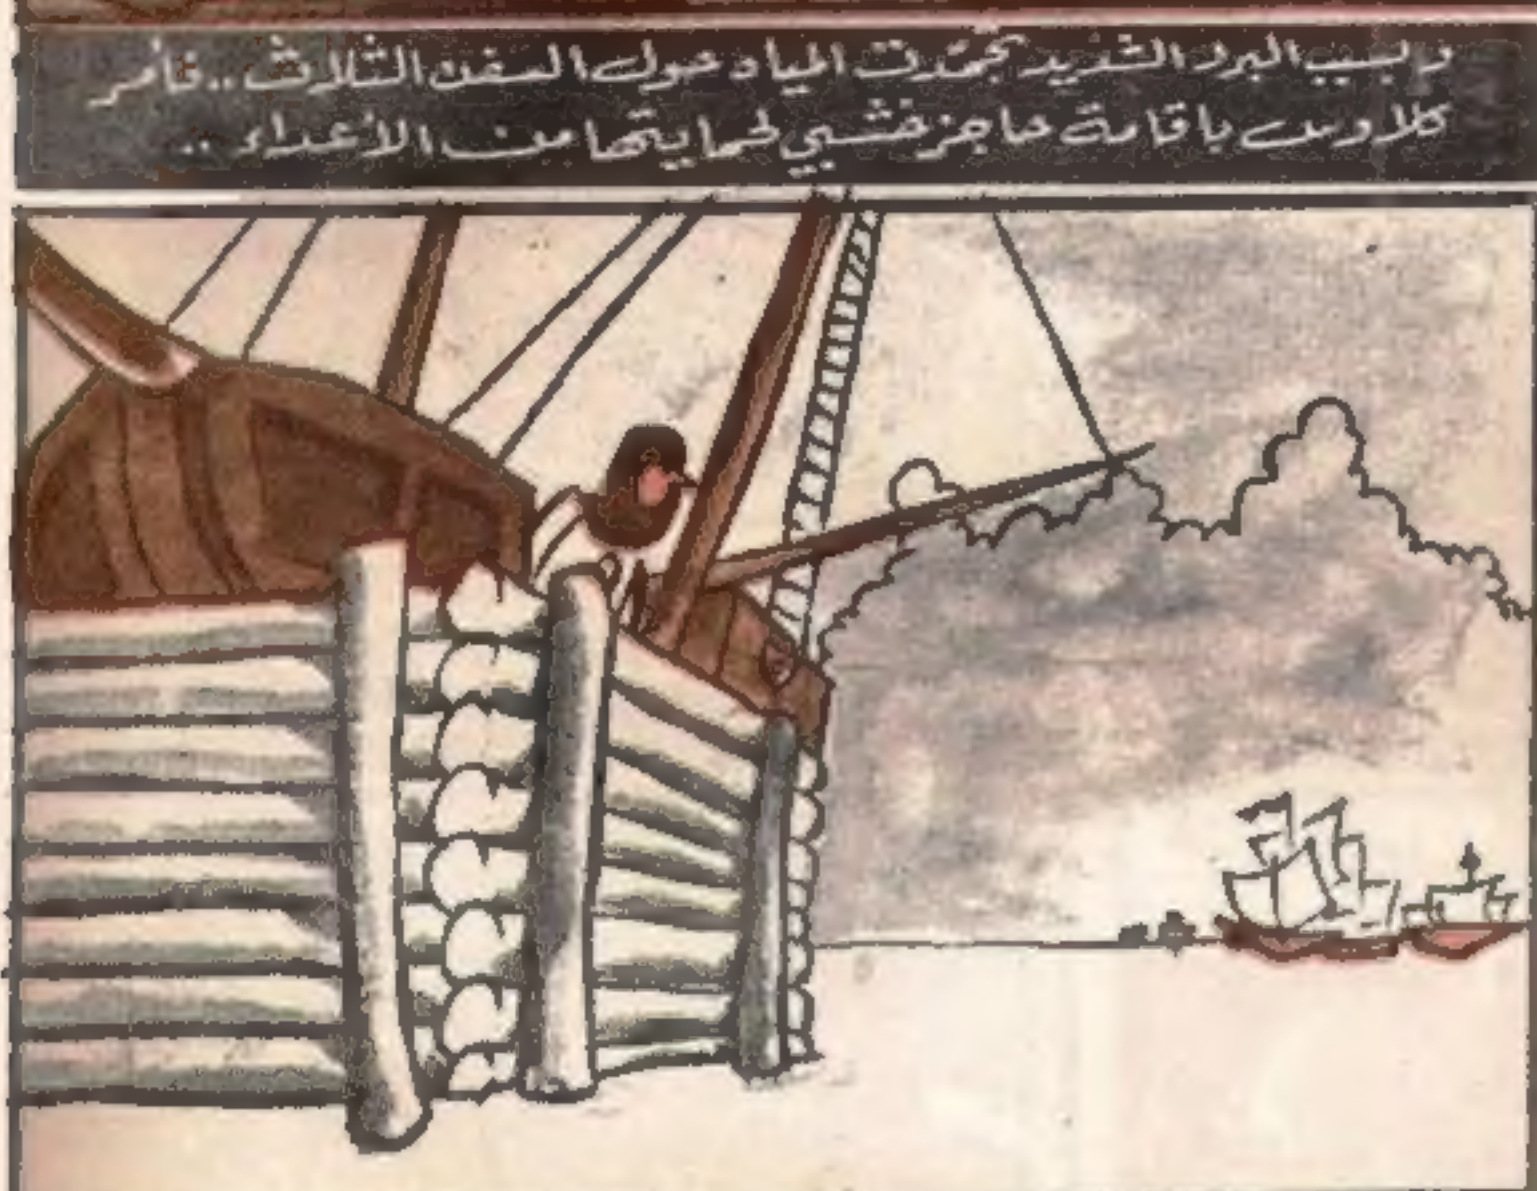 وبسبب البرد الشديد تجمّدت المياه حول السفن الثلاث .. فأمر
كلاوس باقامة حاجز خشبي لحمايتها من الأعداء ..